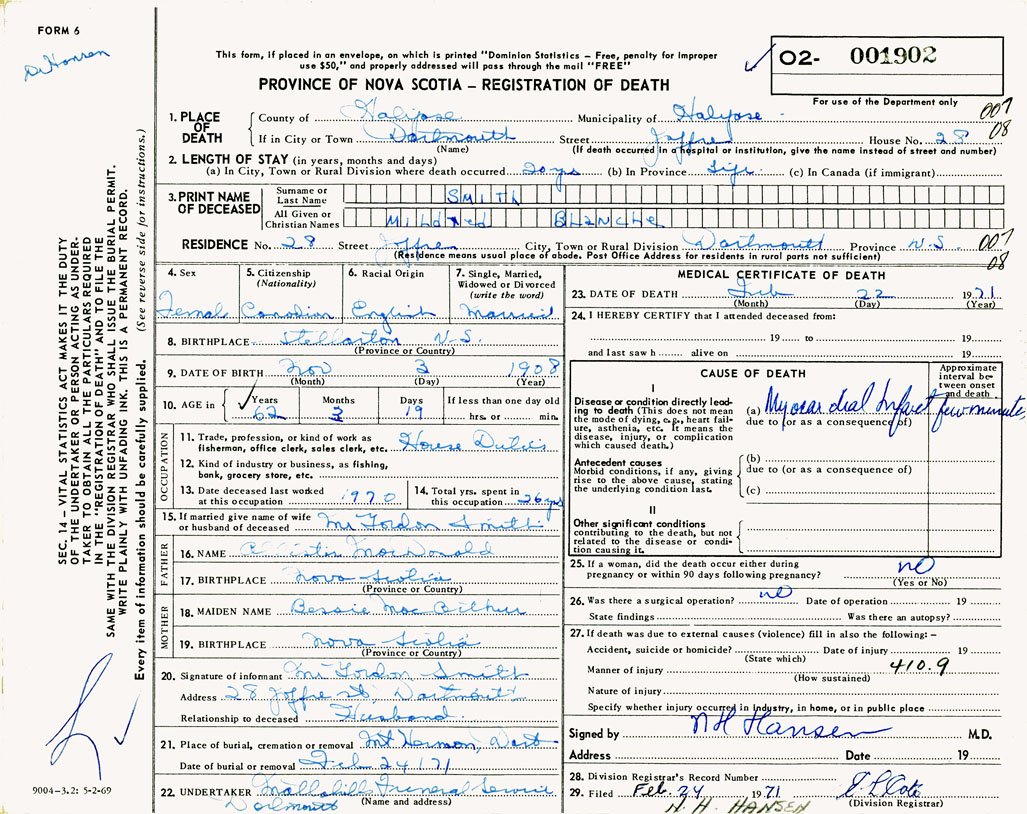 FORM 6
Dr Hansen
This form, if placed in an envelope, on which is printed "Dominion Statistics — Free, penalty for improper
use $50," and properly addressed will pass through the mail "FREE"
O2- 001902
For use of the Department only
PROVINCE OF NOVA SCOTIA — REGISTRATION OF DEATH
007
08
1. PLACE OF DEATH County of Halifax Municipality of Halifax
If in City or Town Dartmouth Street Joffre House No. 28
(Name) (If death occurred in a hospital or institution, give the name instead of street and number)
2. LENGTH OF STAY (in years, months and days)
(a) In City, Town or Rural Division where death occurred 20 yrs (b) In Province Life (c) In Canada (if immigrant)
3. PRINT NAME OF DECEASED Surname or Last Name SMITH
All Given or Christian Names Mildred BLANCHE
RESIDENCE No. 28 Street Joffre City, Town or Rural Division Dartmouth Province N.S. 007
08
(Residence means usual place of abode. Post Office Address for residents in rural parts not sufficient)
4. Sex 5. Citizenship (Nationality) 6. Racial Origin 7. Single, Married, Widowed or Divorced (write the word)
Female Canadian English Married
8. BIRTHPLACE Stellarton N.S.
(Province or Country)
9. DATE OF BIRTH Nov 3 1908
(Month) (Day) (Year)
10. AGE in Years Months Days If less than one day old
62 3 19 hrs. or min.
OCCUPATION
11. Trade, profession, or kind of work as
fisherman, office clerk, sales clerk, etc. House Duties
12. Kind of industry or business, as fishing,
bank, grocery store, etc.
13. Date deceased last worked at this occupation 1970 14. Total yrs. spent in this occupation 26 yrs
15. If married give name of wife
or husband of deceased Mr Gordon Smith
FATHER
16. NAME MacDonald
17. BIRTHPLACE Nova Scotia
(Province or Country)
MOTHER
18. MAIDEN NAME Bessie Mac
19. BIRTHPLACE Nova Scotia
(Province or Country)
20. Signature of informant Mr Gordon Smith
Address 28 Joffre St, Dartmouth
Relationship to deceased Husband
21. Place of burial, cremation or removal Mt Hermon, Dart
Date of burial or removal Feb 24/71
22. UNDERTAKER Funeral Service
Dartmouth (Name and address)
MEDICAL CERTIFICATE OF DEATH
23. DATE OF DEATH Feb 22 1971
(Month) (Day) (Year)
24. I HEREBY CERTIFY that I attended deceased from:
19 to 19
and last saw h alive on 19
CAUSE OF DEATH
Approximate interval between onset and death
I
Disease or condition directly leading to death (This does not mean the mode of dying, e.g., heart failure, asthenia, etc. It means the disease, injury, or complication which caused death.)
(a) Myocardial Infarct few minutes
due to (or as a consequence of)
Antecedent causes
Morbid conditions, if any, giving rise to the above cause, stating the underlying condition last.
(b)
due to (or as a consequence of)
(c)
II
Other significant conditions
contributing to the death, but not related to the disease or condition causing it.
25. If a woman, did the death occur either during
pregnancy or within 90 days following pregnancy? no
(Yes or No)
26. Was there a surgical operation? no Date of operation 19
State findings Was there an autopsy?
27. If death was due to external causes (violence) fill in also the following: —
Accident, suicide or homicide? Date of injury 19
(State which)
Manner of injury 410.9
(How sustained)
Nature of injury
Specify whether injury occurred in industry, in home, or in public place
Signed by N H Hansen M.D.
Address Date 19
28. Division Registrar's Record Number
29. Filed Feb. 24 1971
(Division Registrar)
N. H. HANSEN
SEC. 14 — VITAL STATISTICS ACT MAKES IT THE DUTY
OF THE UNDERTAKER OR PERSON ACTING AS UNDER-
TAKER TO OBTAIN ALL THE PARTICULARS REQUIRED
IN THE "REGISTRATION OF DEATH" AND TO FILE THE
SAME WITH THE DIVISION REGISTRAR WHO SHALL ISSUE THE BURIAL PERMIT.
WRITE PLAINLY WITH UNFADING INK. THIS IS A PERMANENT RECORD.
Every item of information should be carefully supplied. (See reverse side for instructions.)
9004-3.2: 5-2-69